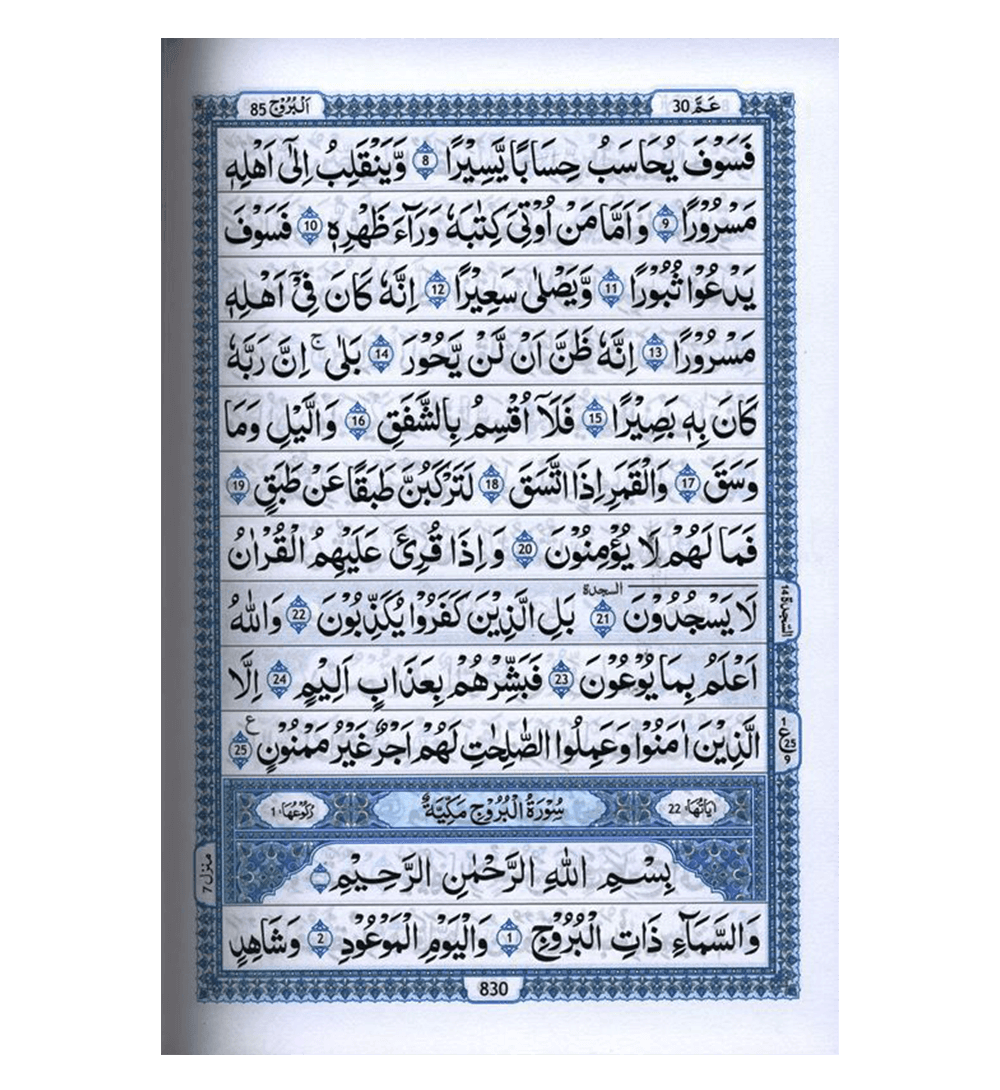 عَمَّ 30
اَلْبُرُوْج 85
فَسَوْفَ يُحَاسَبُ حِسَابًا يَّسِيْرًا 8 وَّيَنْقَلِبُ اِلٰٓى اَهْلِهٖ
مَسْرُوْرًا 9 وَاَمَّا مَنْ اُوْتِىَ كِتٰبَهٗ وَرَآءَ ظَهْرِهٖ 10 فَسَوْفَ
يَدْعُوْا ثُبُوْرًا 11 وَّيَصْلٰى سَعِيْرًا 12 اِنَّهٗ كَانَ فِىْٓ اَهْلِهٖ
مَسْرُوْرًا 13 اِنَّهٗ ظَنَّ اَنْ لَّنْ يَّحُوْرَ 14 بَلٰٓى ۚ اِنَّ رَبَّهٗ
كَانَ بِهٖ بَصِيْرًا 15 فَلَآ اُقْسِمُ بِالشَّفَقِ 16 وَالَّيْلِ وَمَا
وَسَقَ 17 وَالْقَمَرِ اِذَا اتَّسَقَ 18 لَتَرْكَبُنَّ طَبَقًا عَنْ طَبَقٍ 19
فَمَا لَهُمْ لَا يُؤْمِنُوْنَ 20 وَاِذَا قُرِئَ عَلَيْهِمُ الْقُرْاٰنُ
لَا يَسْجُدُوْنَ السجدة 21 بَلِ الَّذِيْنَ كَفَرُوْا يُكَذِّبُوْنَ 22 وَاللّٰهُ
السجدة 14
اَعْلَمُ بِمَا يُوْعُوْنَ 23 فَبَشِّرْهُمْ بِعَذَابٍ اَلِيْمٍ 24 اِلَّا
الَّذِيْنَ اٰمَنُوْا وَعَمِلُوا الصّٰلِحٰتِ لَهُمْ اَجْرٌ غَيْرُ مَمْنُوْنٍ ع 25
1
ع 25
9
اٰيَاتُهَا 22
سُوْرَةُ الْبُرُوْجِ مَكِّيَّةٌ
رُكُوْعُهَا 1
بِسْمِ اللّٰهِ الرَّحْمٰنِ الرَّحِيْمِ
منزل 7
وَالسَّمَآءِ ذَاتِ الْبُرُوْجِ 1 وَالْيَوْمِ الْمَوْعُوْدِ 2 وَشَاهِدٍ
830